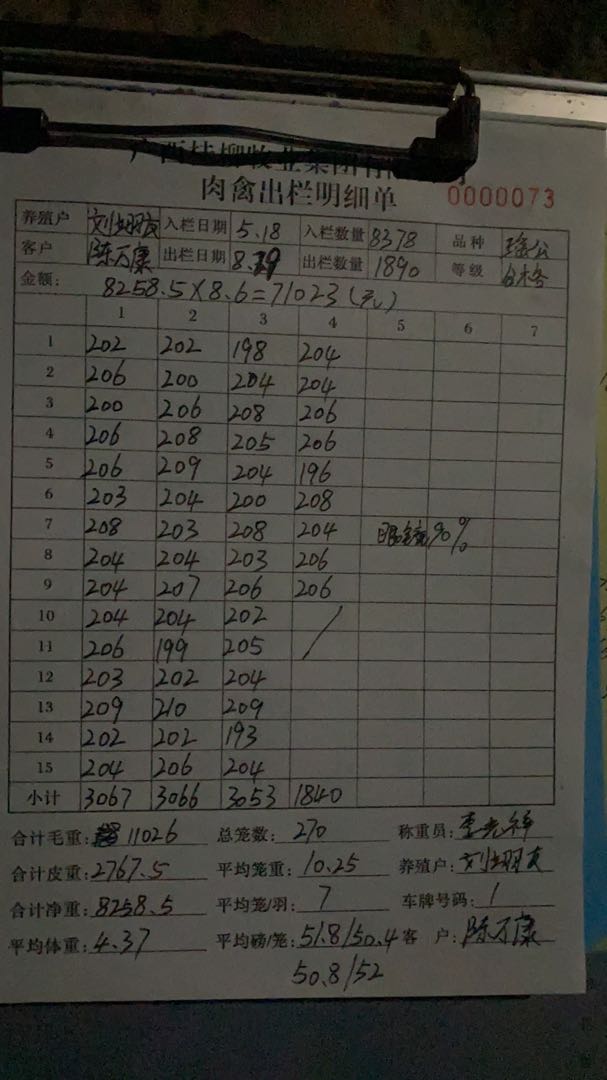 广西桂柳牧业集团有限
肉禽出栏明细单 0000073
养殖户 入栏日期 5.18 入栏数量 8378 品种 瑶公
客户 陈万康 出栏日期 出栏数量 1890 等级 合格
金额: 8258.5×8.6=71023(元)
1 2 3 4 5 6 7
1 202 202 198 204
2 206 200 204 204
3 200 206 208 206
4 206 208 205 206
5 206 209 204 196
6 203 204 200 208
7 208 203 208 204 90%
8 204 204 203 206
9 204 207 206 206
10 204 204 202
11 206 199 205
12 203 202 204
13 209 210 209
14 202 202 193
15 204 206 204
小计 3067 3066 3053 1840
合计毛重: 11026 总笼数: 270 称重员:
合计皮重: 2767.5 平均笼重: 10.25 养殖户:
合计净重: 8258.5 平均笼/羽: 7 车牌号码: 1
平均体重: 4.37 平均磅/笼: 51.8/50.4 客 户: 陈万康
50.8/52